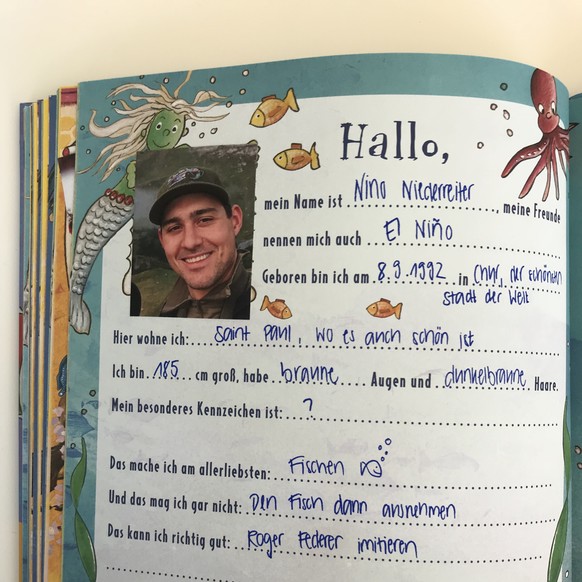 Hallo,
mein Name ist Nino Niederreiter, meine Freunde
nennen mich auch El Niño
Geboren bin ich am 8.9.1992 in Chur, der schönsten
Stadt der Welt
Hier wohne ich: Saint Paul, wo es auch schön ist
Ich bin 185 cm groß, habe braune Augen und dunkelbraune Haare.
Mein besonderes Kennzeichen ist: ?
Das mache ich am allerliebsten: Fischen
Und das mag ich gar nicht: Den Fisch dann ausnehmen
Das kann ich richtig gut: Roger Federer imitieren